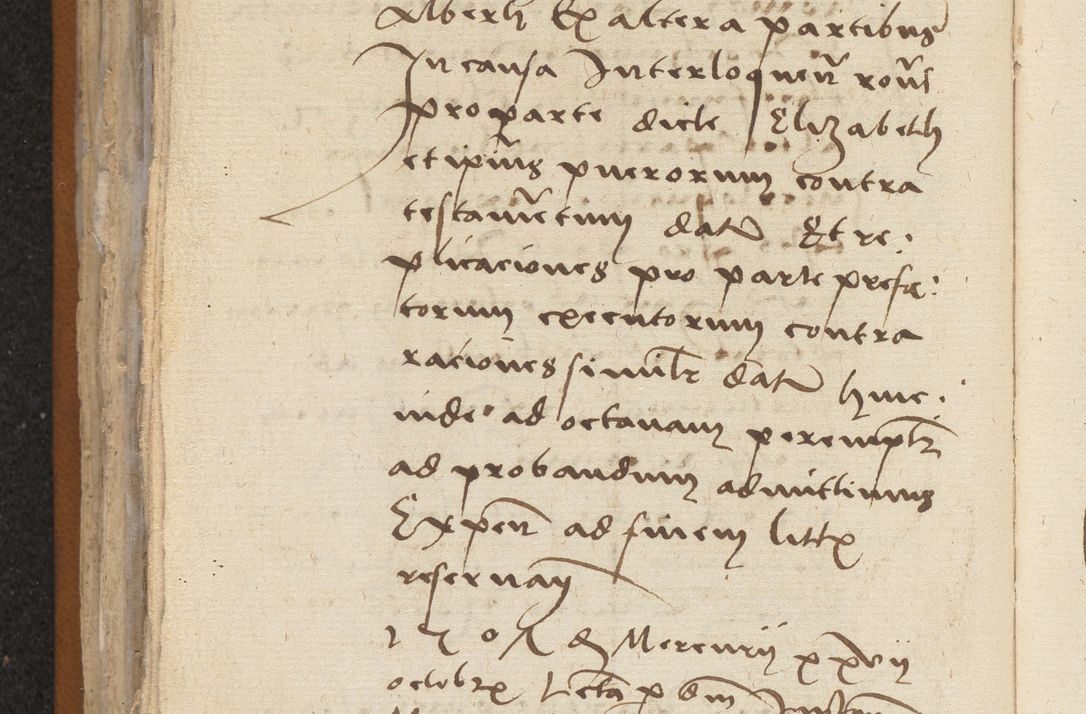 Alberti Ex altera partibus
In causa Interloquen rons
pro parte dicte Elizabeth
et ipius puerorum contra
testamentum datu Et re:
plicaciones pro parte prefa:
torum executorum contra
raciones similr datu hinc:
inde ad octavam peremptr
ad probandum admittimus
Expen ad finem littx
reservan
Mercurij xxvij
octobrx Lecta p dm